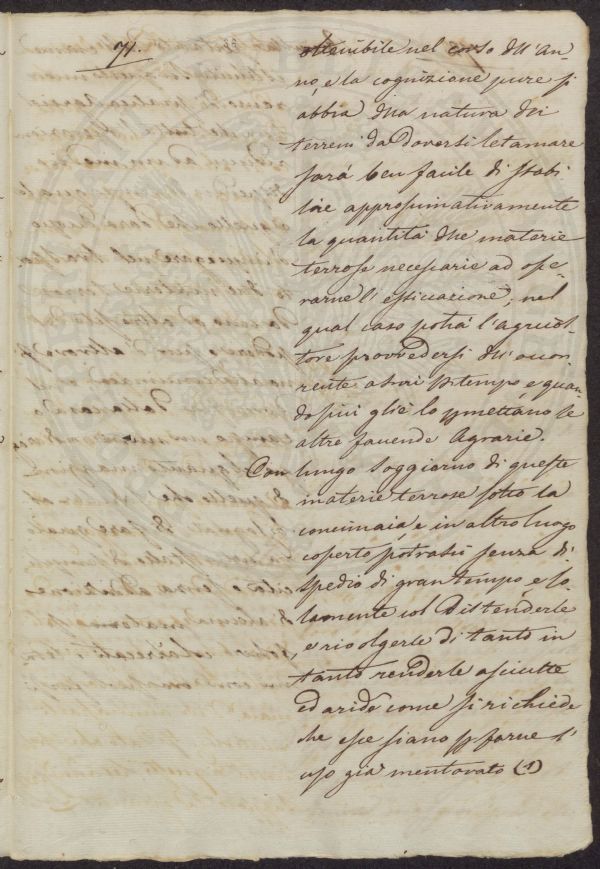 71.
ottenibile nel corso dll'an-
no, e la cognizione pure si
abbia dlla natura dei
terreni da doversi letamare
sarà ben facile di stabi
lire approssimativamente
la quantità dlle materie
terrose necessarie ad ope-
rarne l'essiccazione; nel
qual caso potrà l'agricol-
tore provvedersi dll'occor-
rente a suoi ptempo, e quan-
do più gliè lo pmettano le
altre faccende Agrarie.
Con lungo soggiorno di queste
materie terrose sotto la
concimaia, e in altro luogo
coperto, potrassi senza di
spedio di gran tempo, e so-
lamente col distenderle
e rivolgerle di tanto in
tanto renderle asciutte
ed aride come si richiede
che esse siano pp farne l'
uso già mentovato (1)